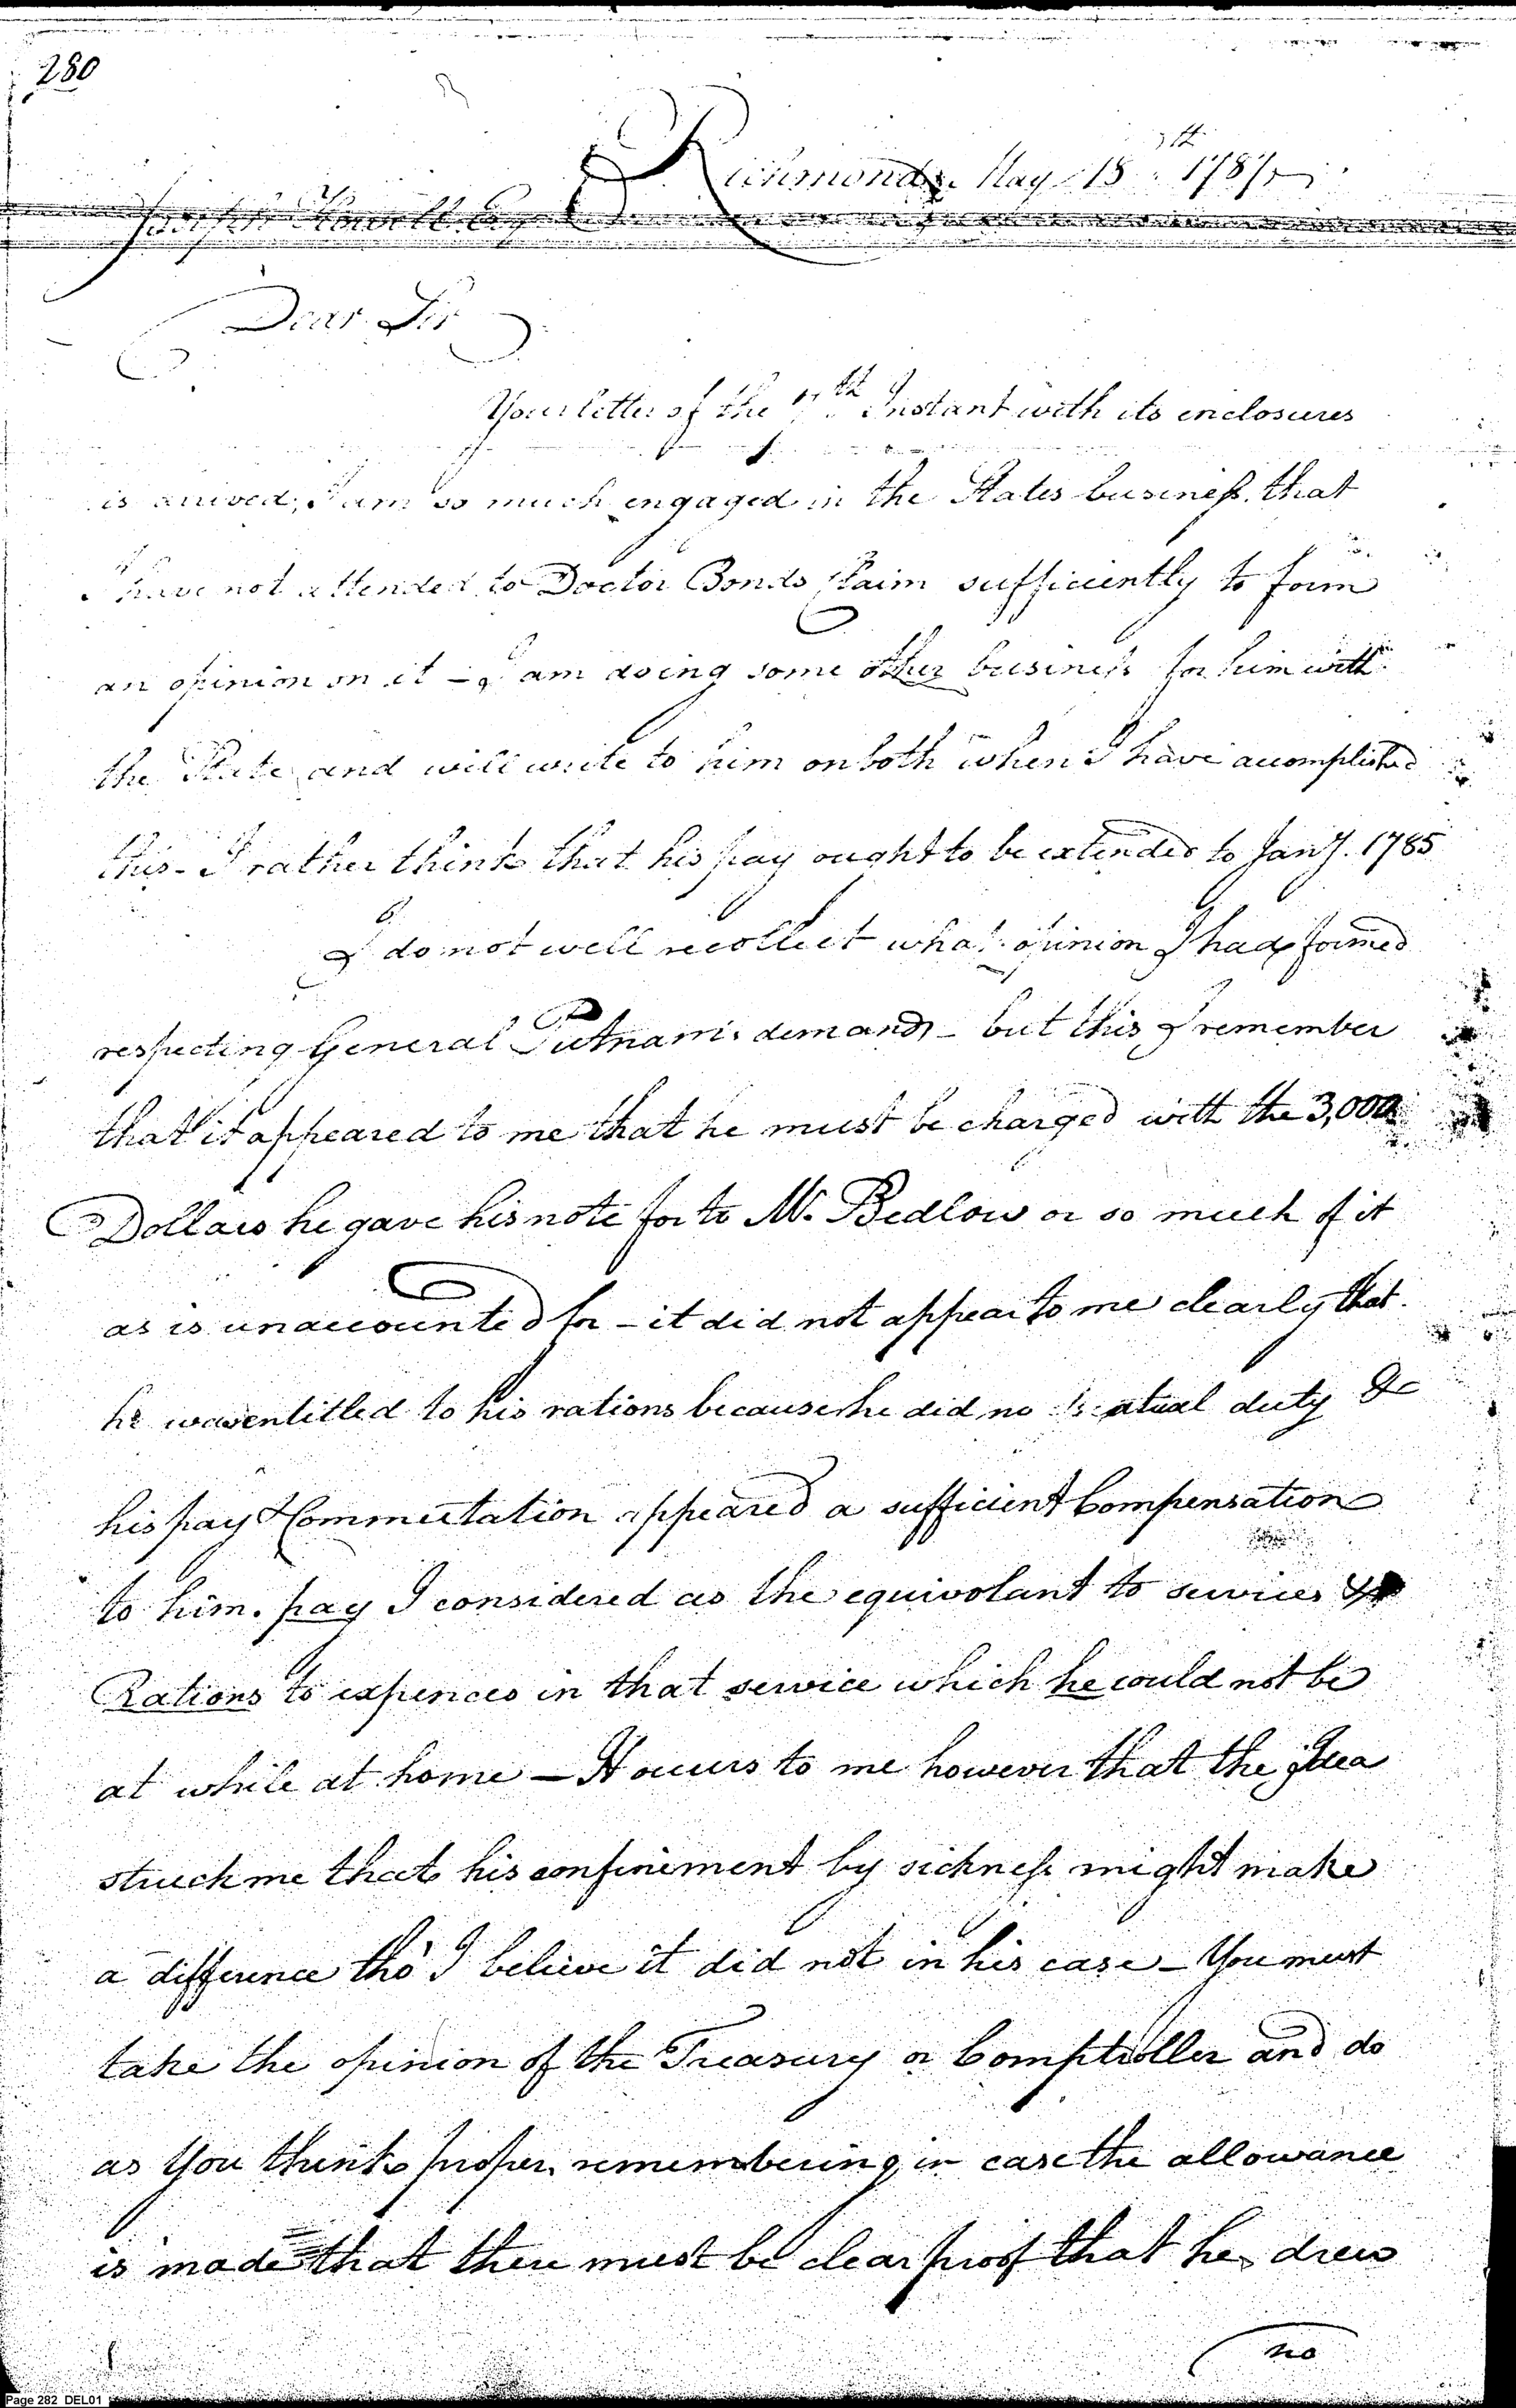 280
Richmond May 15th 1787
Joseph Howell Esqr
Dear Sir
Your letter of the 7th Instant with its enclosures
is arrived; I am so much engaged in the States business that
I have not attended to Doctor Bonds Claim sufficiently to form
an opinion on it – I am doing some other business for him with
the State and will write to him on both when I have accomplished
this – I rather think that his pay ought to be extended to Jany. 1785
I do not well recollect what opinion I had formed
respecting General Putnams demands – but this I remember
that it appeared to me that he must be charged with the 3,000
Dollars he gave his note for to Mr. Bedlow or so much of it
as is unaccounted for – it did not appear to me clearly that
he was entitled to his rations because he did no atual duty &c
his pay & Commutation appeared a sufficient Compensation
to him. pay I considered as the equivolant to services &
Rations to expences in that service which he could not be
at while at home – It occurs to me however that the idea
struck me that his confinement by sickness might make
a difference tho' I believe it did not in his case – You must
take the opinion of the Treasury or Comptroller and do
as You think proper remembering in case the allowance
is made that there must be clear proof that he drew
no
Page 282 DEL01